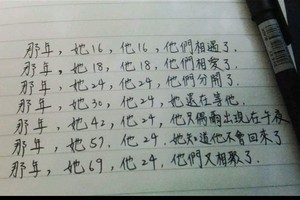 那年，她16，他16，他們相遇了.
那年，她18，他18，他們相愛了.
那年，她24，他24，他們分開了.
那年，她30，他24，她還在等他.
那年，她42，他24，他只偶爾出現在午夜
那年，她57，他24，她知道他不會回來了
那年，她69，他24，他們又相聚了.